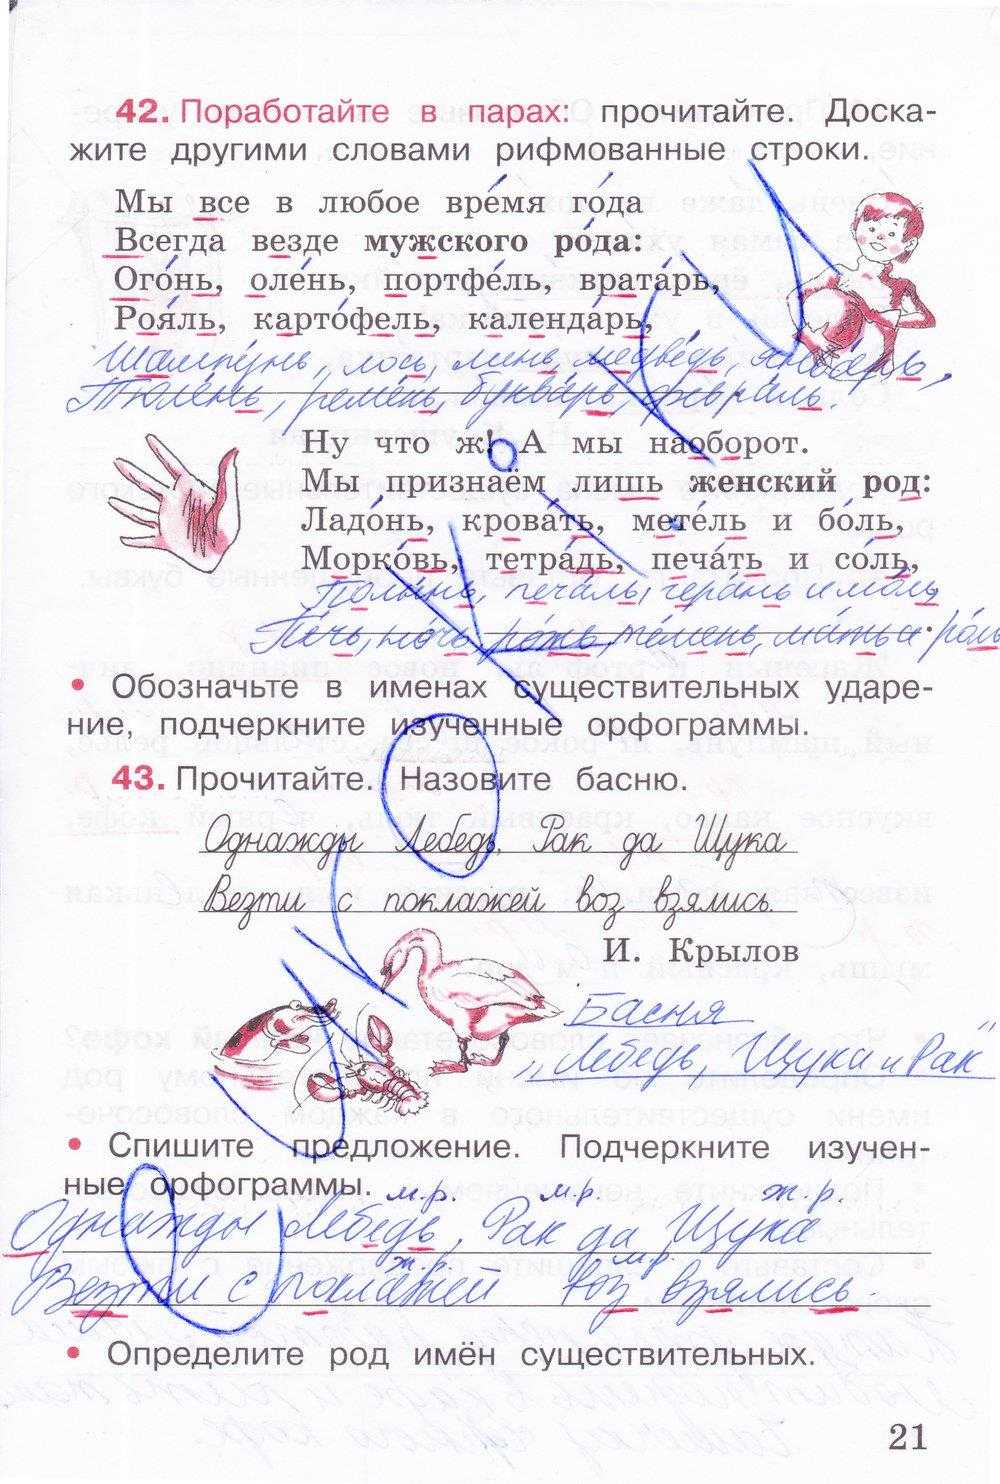 42. Поработайте в парах: прочитайте. Доска-
жите другими словами рифмованные строки.
Мы все в любое вре́мя го́да
Всегда везде мужского ро́да:
Ого́нь, оле́нь, портфе́ль, врата́рь,
Роя́ль, карто́фель, календа́рь,
Шампу́нь, лось, линь, медве́дь, янва́рь,
Тюле́нь, реме́нь, буква́рь, февра́ль.
Ну что ж! А мы наоборот.
Мы признаём лишь женский род:
Ладо́нь, крова́ть, мете́ль и бо́ль,
Морко́вь, тетра́дь, печа́ть и со́ль,
Полы́нь, печа́ль, гера́нь и мо́ль
Пе́чь, но́чь, ро́жь, те́мень, ма́ть и ро́ль
• Обозначьте в именах существительных ударе-
ние, подчеркните изученные орфограммы.
43. Прочитайте. Назовите басню.
Однажды Лебедь, Рак да Щука
Везти с поклажей воз взялись.
И. Крылов
Басня
„Лебедь, Щука и Рак"
• Спишите предложение. Подчеркните изучен-
ные орфограммы.
м.р. м.р ж.р.
Однажды Лебедь, Рак да Щука
ж.р. м.р.
Везти с поклажей воз взялись.
• Определите род имён существительных.
21